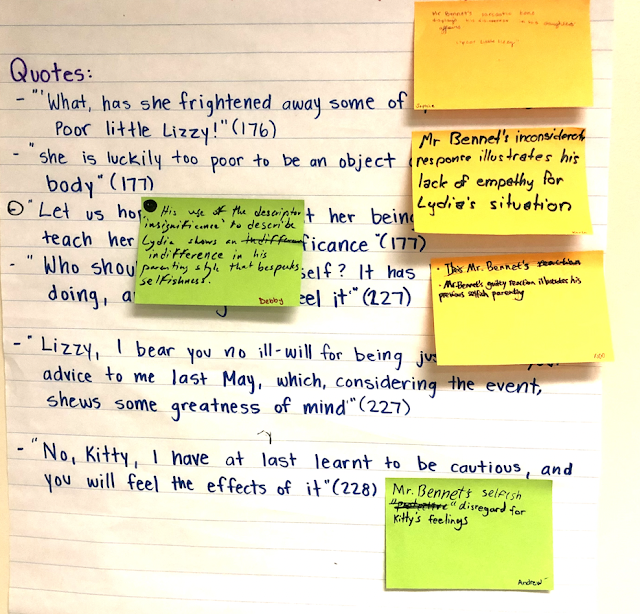 Mr Bennet's
"Poor little Lizzy"
Sophia
Quotes:
- "'What, has she frightened away some of
Poor little Lizzy!" (176)
Mr Bennet's inconsiderate
response illustrates his
lack of empathy for
Lydia's situation
- "she is luckily too poor to be an object
body" (177)
"Let us ho t her being
teach her ficance" (177)
His use of the descriptor
'insignificance' to describe
Lydia shows an
indifference in his
parenting style that bespeaks
selfishness.
Debby
- "Who shou self? It has
doing, a eel it'" (227)
• This Mr. Bennet's
• Mr. Bennet's guilty reaction illustrates his
previous selfish parenting
- "Lizzy, I bear you no ill-will for being jus
advice to me last May, which, considering the event,
shews some greatness of mind'" (227)
- "No, Kitty, I have at last learnt to be cautious, and
you will feel the effects of it" (228)
Mr. Bennet's selfish
" disregard for
Kitty's feelings
Andrew